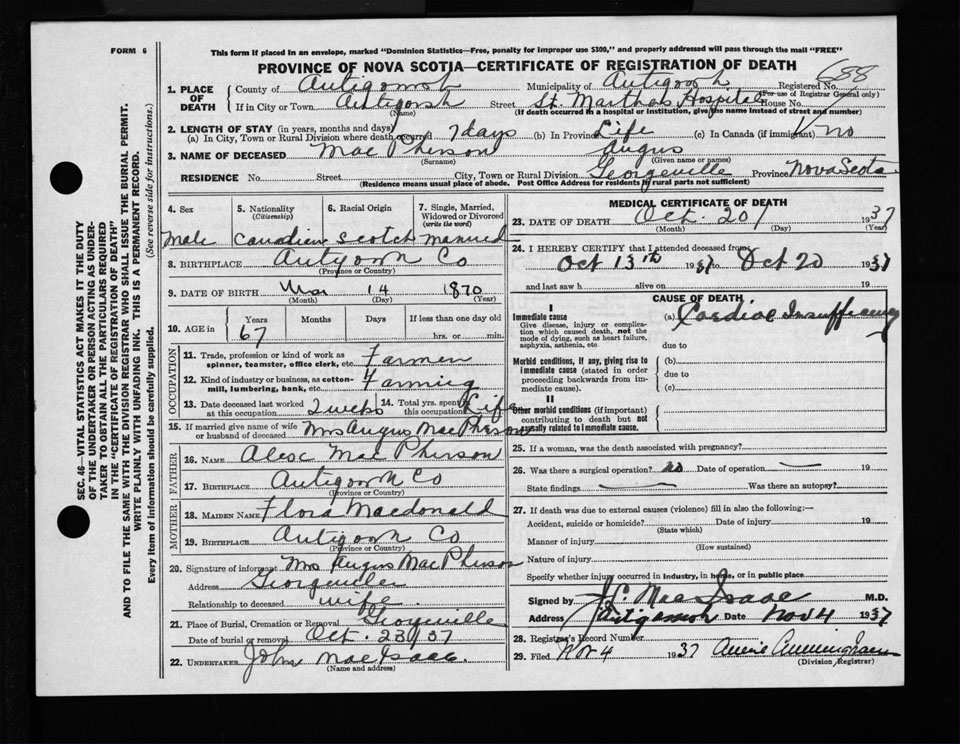 FORM 6
This form if placed in an envelope, marked "Dominion Statistics—Free, penalty for improper use $300," and properly addressed will pass through the mail "FREE"
PROVINCE OF NOVA SCOTIA—CERTIFICATE OF REGISTRATION OF DEATH
688
1. PLACE OF DEATH
County of Antigonish Municipality of Antigonish Registered No.
(For use of Registrar General only)
If in City or Town Antigonish Street St. Marthas Hospital House No.
(Name) (If death occurred in a hospital or institution, give the name instead of street and number)
2. LENGTH OF STAY (in years, months and days)
(a) In City, Town or Rural Division where death occurred 7 days (b) In Province Life (c) In Canada (if immigrant) no
3. NAME OF DECEASED Mac Pherson Angus
(Surname) (Given name or names)
RESIDENCE No. Street City, Town or Rural Division Georgeville Province Nova Scotia
(Residence means usual place of abode. Post Office Address for residents in rural parts not sufficient)
4. Sex 5. Nationality (Citizenship) 6. Racial Origin 7. Single, Married, Widowed or Divorced (write the word)
Male Canadian Scotch Married
8. BIRTHPLACE Antigonish Co
(Province or Country)
9. DATE OF BIRTH Mar 14 1870
(Month) (Day) (Year)
10. AGE in Years Months Days If less than one day old
67 hrs. or min.
OCCUPATION
11. Trade, profession or kind of work as spinner, teamster, office clerk, etc. Farmer
12. Kind of industry or business, as cotton-mill, lumbering, bank, etc. Farming
13. Date deceased last worked at this occupation 2 weeks 14. Total yrs. spent this occupation Life
15. If married give name of wife or husband of deceased Mrs Angus MacPherson
FATHER
16. NAME Alex Mac Pherson
17. BIRTHPLACE Antigonish Co
(Province or Country)
MOTHER
18. MAIDEN NAME Flora Macdonald
19. BIRTHPLACE Antigonish Co
(Province or Country)
20. Signature of informant Mrs Angus MacPherson
Address Georgeville
Relationship to deceased wife
21. Place of Burial, Cremation or Removal Georgeville
Date of burial or removal Oct. 23/37
22. UNDERTAKER John MacIsaac
(Name and address)
MEDICAL CERTIFICATE OF DEATH
23. DATE OF DEATH Oct. 20/ 1937
(Month) (Day) (Year)
24. I HEREBY CERTIFY that I attended deceased from
Oct 13th 1937 to Oct 20 1937
and last saw h alive on 19
CAUSE OF DEATH
I
Immediate cause (a) Cardiac Insufficiency
Give disease, injury or complication which caused death, not the mode of dying, such as heart failure, asphyxia, asthenia, etc.
due to
Morbid conditions, if any, giving rise to immediate cause (stated in order proceeding backwards from immediate cause).
(b)
due to
(c)
II
Other morbid conditions (if important) contributing to death but not causally related to immediate cause.
25. If a woman, was the death associated with pregnancy?
26. Was there a surgical operation? no Date of operation — 19
State findings — Was there an autopsy?
27. If death was due to external causes (violence) fill in also the following:—
Accident, suicide or homicide? Date of injury 19
(State which)
Manner of injury
(How sustained)
Nature of injury
Specify whether injury occurred in industry, in home, or in public place
Signed by MacIsaac M.D.
Address Antigonish Date Nov 4 1937
28. Registrar's Record Number
29. Filed Nov 4 1937 Annie Cunningham
(Division Registrar)
SEC. 46—VITAL STATISTICS ACT MAKES IT THE DUTY
OF THE UNDERTAKER OR PERSON ACTING AS UNDER-
TAKER TO OBTAIN ALL THE PARTICULARS REQUIRED
IN THE "CERTIFICATE OF REGISTRATION OF DEATH"
AND TO FILE THE SAME WITH THE DIVISION REGISTRAR WHO SHALL ISSUE THE BURIAL PERMIT.
WRITE PLAINLY WITH UNFADING INK. THIS IS A PERMANENT RECORD.
Every item of information should be carefully supplied. (See reverse side for instructions.)